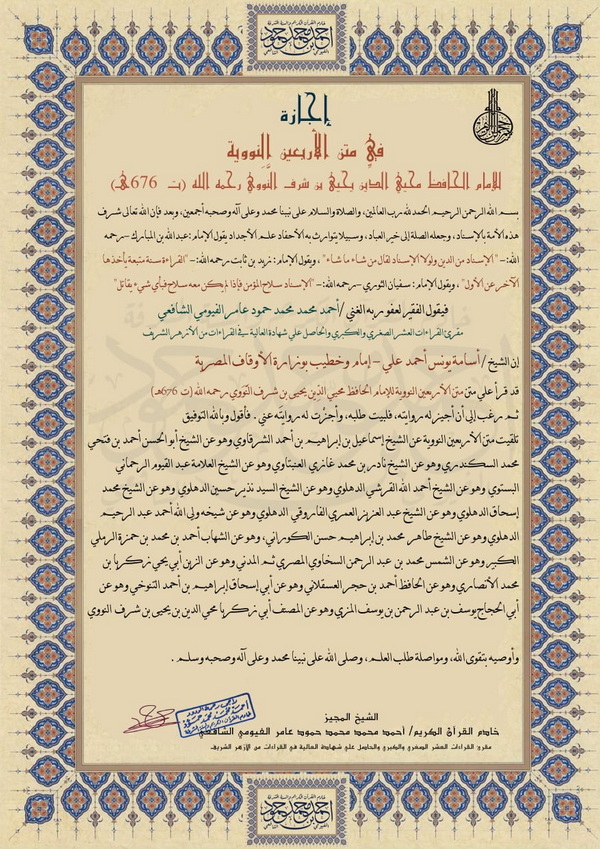 خادم القرآن الكريم والسنة المشرفة
أحمد بن محمد حمود
إجازة
في متن الأربعين النووية
للإمام الحافظ محيي الدين يحيى بن شرف النَّووي رحمه الله (ت 676هـ)
بسم الله الرحمن الرحيم الحمد لله رب العالمين، والصلاة والسلام على نبينا محمد وعلى آله وصحبه أجمعين، وبعد فإن الله تعالى شرف
هذه الأمة بالإسناد، وجعله الصلة إلى خير العباد، وسبيلا يتوارث به الأحفاد علم الأجداد يقول الإمام: عبدالله بن المبارك -رحمه
الله:- "الإسناد من الدين ولولا الإسناد لقال من شاء ما شاء"، ويقول الإمام: زيد بن ثابت رحمه الله:- "القراءة سنة متبعة يأخذها
الآخر عن الأول"، ويقول الإمام: سفيان الثوري -رحمه الله:- "الإسناد سلاح المؤمن فإذا لم يكن معه سلاح فبأي شيء يقاتل"
فيقول الفقير لعفو ربه الغني/ أحمد محمد محمد حمود عامر الفيومي الشافعي
مقرئ القراءات العشر الصغرى والكبرى والحاصل على شهادة العالية في القراءات من الأزهر الشريف
إن الشيخ/ أسامة يونس أحمد علي - إمام وخطيب بوزارة الأوقاف المصرية
قد قرأ علي متن متن الأربعين النووية للإمام الحافظ محيي الدين يحيى بن شرف النَّووي رحمه الله (ت 676هـ)
ثم رغب إلى أن أجيز له روايته، فلبيت طلبه، وأجزت له روايته عني. فأقول وبالله التوفيق
تلقيت متن الأربعين النووية عن الشيخ إسماعيل بن إبراهيم بن أحمد الشرقاوي وهو عن الشيخ أبو الحسن أحمد بن فتحي
محمد السكندري وهو عن الشيخ نادر بن محمد غازي العنبتاوي وهو عن الشيخ العلامة عبد القيوم الرحماني
البستوي وهو عن الشيخ أحمد الله القرشي الدهلوي وهو عن الشيخ السيد نذير حسين الدهلوي وهو عن الشيخ محمد
إسحاق الدهلوي وهو عن الشيخ عبد العزيز العمري الفاروقي الدهلوي وهو عن شيخه ولي الله أحمد عبد الرحيم
الدهلوي وهو عن الشيخ طاهر محمد بن إبراهيم حسن الكوراني، وهو عن الشهاب أحمد بن محمد بن حمزة الرملي
الكبير وهو عن الشمس محمد بن عبد الرحمن السخاوي المصري ثم المدني وهو عن الزين أبي يحي زكريا بن
محمد الأنصاري وهو عن الحافظ أحمد بن حجر العسقلاني وهو عن أبي إسحاق إبراهيم بن أحمد التنوخي وهو عن
أبي الحجاج يوسف بن عبد الرحمن بن يوسف المزي وهو عن المصنف أبي زكريا محي الدين بن يحيى بن شرف النووي
وأوصيه بتقوى الله، ومواصلة طلب العلم، وصلى الله على نبينا محمد وعلى آله وصحبه وسلم.
الشيخ المجيز
خادم القرآن الكريم/ أحمد محمد محمد حمود عامر الفيومي الشافعي
مقرئ القراءات العشر الصغرى والكبرى والحاصل على شهادة العالية في القراءات من الأزهر الشريف
خادم القرآن الكريم والسنة المشرفة
أحمد بن محمد حمود